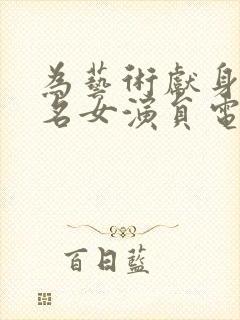 為藝術獻身
名女演員電
百日藍